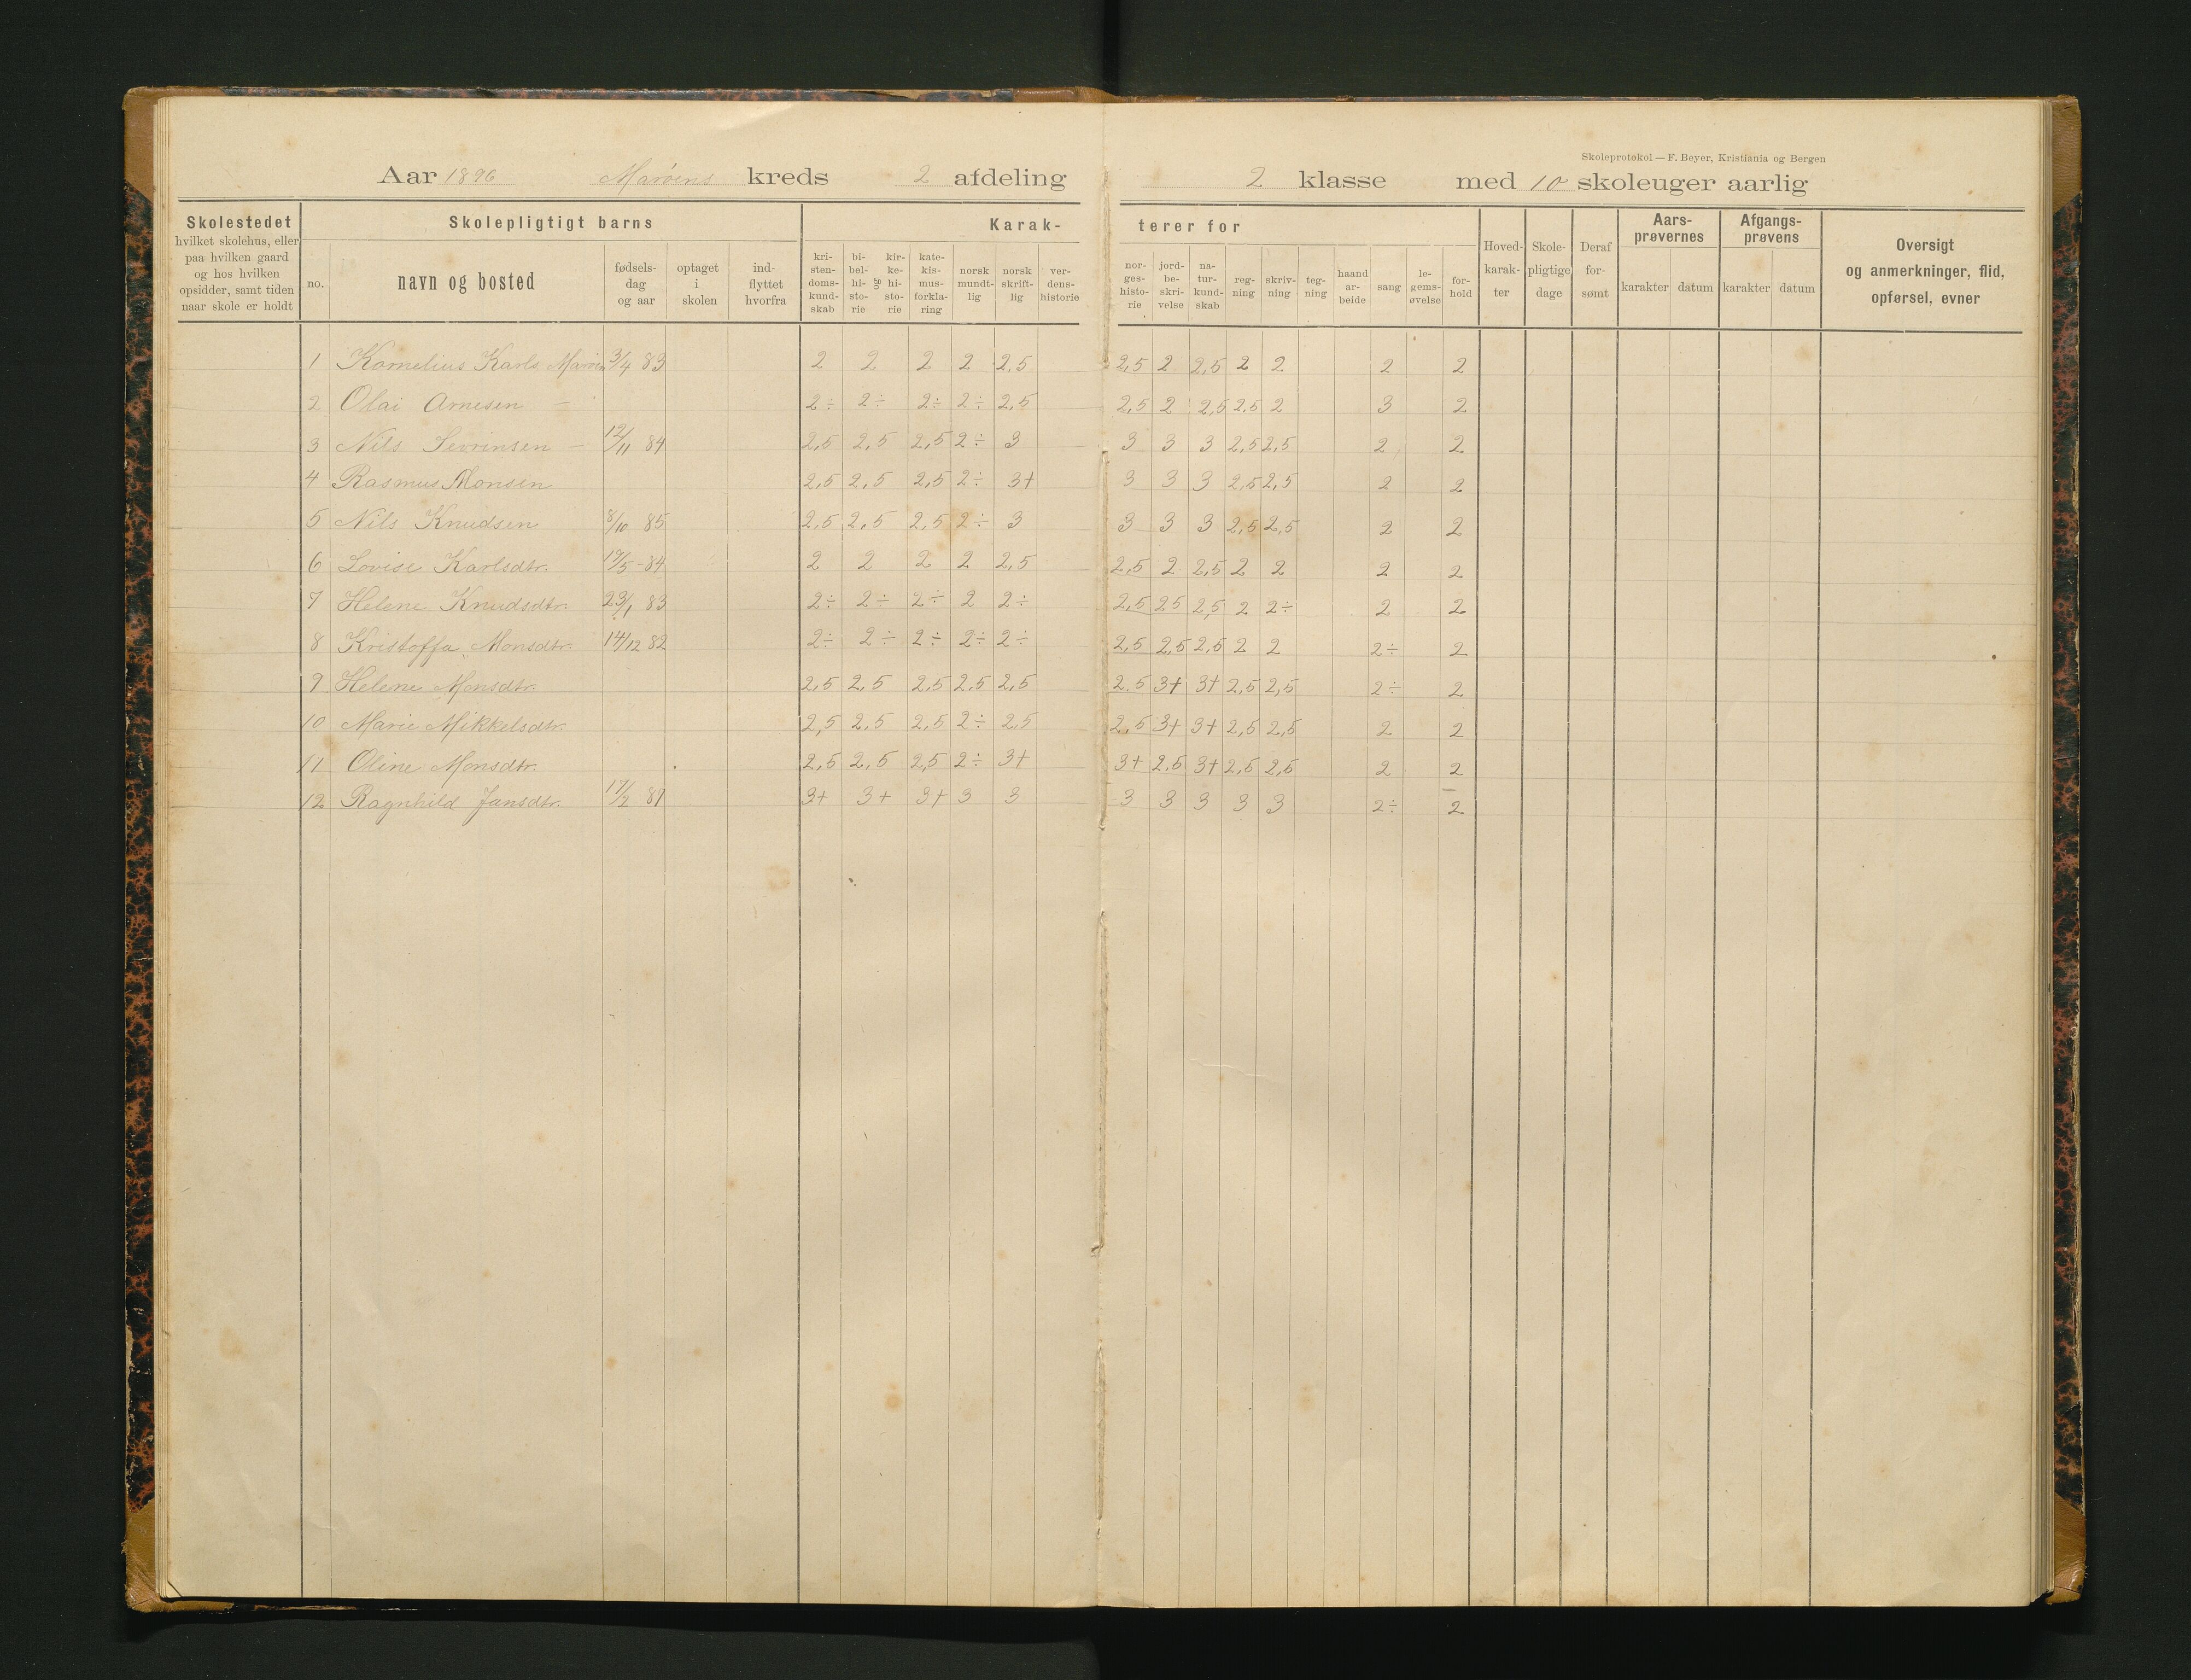 Skoleprotokol — F. Beyer, Kristiania og Bergen
Aar 1896 Marøens kreds 2 afdeling 2 klasse med 10 skoleuger aarlig
Skolestedet hvilket skolehus, eller paa hvilken gaard og hos hvilken opsidder, samt tiden naar skole er holdt
Skolepligtigt barns
no. navn og bosted fødsels-dag og aar optaget i skolen ind-flyttet hvorfra
Karak-terer for
kri-sten-doms-kund-skab bi-bel-hi-sto-rie og kir-ke-hi-sto-rie kate-kis-mus-forkla-ring norsk mundt-lig norsk skrift-lig ver-dens-historie nor-ges-histo-rie jord-be-skri-velse na-tur-kund-skab reg-ning skriv-ning teg-ning haand ar-beide sang le-gems-øvelse for-hold
Hoved-karak-ter Skole-pligtige dage Deraf for-sømt
Aars-prøvernes karakter datum
Afgangs-prøvens karakter datum
Oversigt og anmerkninger, flid, opførsel, evner
1 Kornelius Karls. 3/4 83 2 2 2 2 2,5 2,5 2 2,5 2 2 2 2
2 Olai Arnesen — 2÷ 2÷ 2÷ 2÷ 2,5 2,5 2 2,5 2,5 2 3 2
3 Nils Sevrinsen — 12/11 84 2,5 2,5 2,5 2÷ 3 3 3 3 2,5 2,5 2 2
4 Rasmus Monsen 2,5 2,5 2,5 2÷ 3+ 3 3 3 2,5 2,5 2 2
5 Nils Knudsen 8/10 85 2,5 2,5 2,5 2÷ 3 3 3 3 2,5 2,5 2 2
6 Lovise Karlsdtr. 19/5-84 2 2 2 2 2,5 2,5 2 2,5 2 2 2 2
7 Helene Knudsdtr. 23/1 83 2÷ 2÷ 2÷ 2 2÷ 2,5 25 2,5 2 2÷ 2 2
8 Kristoffa Monsdtr. 14/12 82 2÷ 2÷ 2÷ 2÷ 2÷ 2,5 2,5 2,5 2 2 2÷ 2
9 Helene Monsdtr. 2,5 2,5 2,5 2,5 2,5 2,5 3+ 3+ 2,5 2,5 2÷ 2
10 Marie Mikkelsdtr. 2,5 2,5 2,5 2÷ 2,5 2,5 3+ 3+ 2,5 2,5 2 2
11 Oline Monsdtr. 2,5 2,5 2,5 2÷ 3+ 3+ 2,5 3+ 2,5 2,5 2 2
12 Ragnhild Jansdtr. 3+ 3+ 3+ 3 3 3 3 3 3 3 2÷ 2